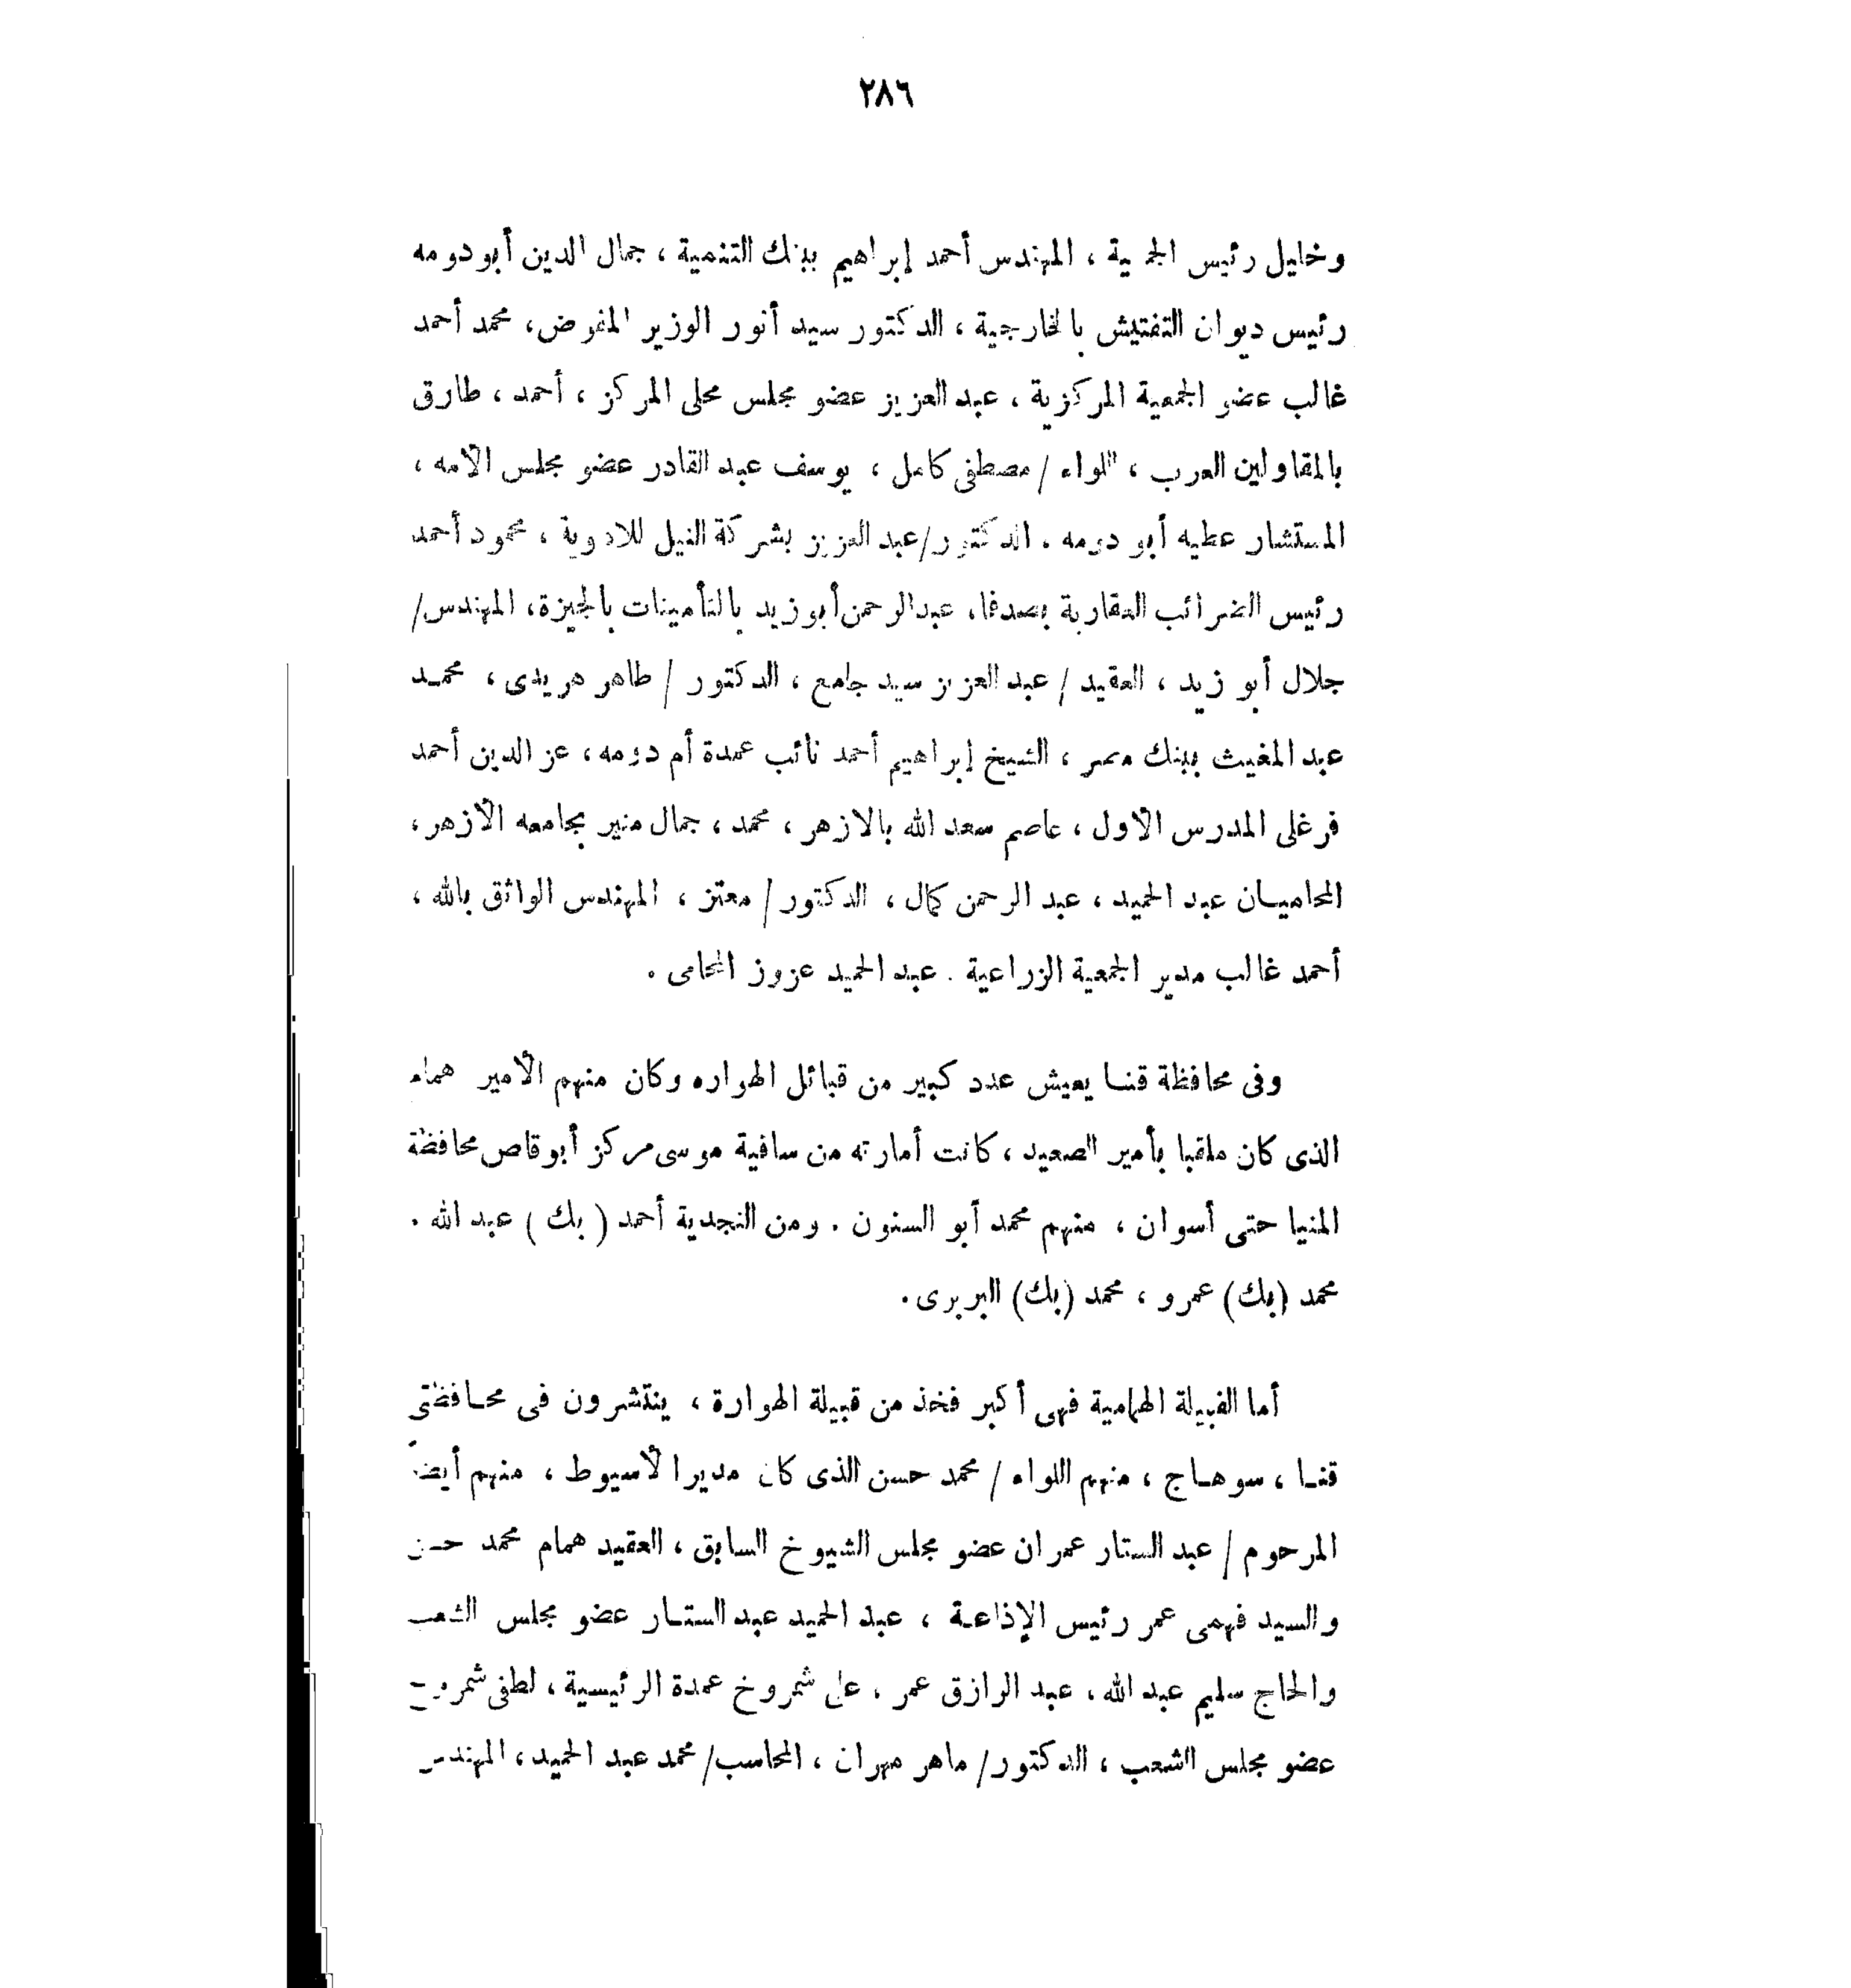 ٢٨٦
وخليل رئيس الجمعية ، المهندس أحمد إبراهيم ببنك التنمية ، جمال الدين أبو دومه
رئيس ديوان التفتيش بالخارجية ، الدكتور سيد أنور الوزير المفوض، محمد أحمد
غالب عضو الجمعية المركزية ، عبد العزيز عضو مجلس محلى المركز ، أحمد ، طارق
بالمقاولين العرب ، اللواء / مصطفى كامل ، يوسف عبد القادر عضو مجلس الأمه ،
المستشار عطيه أبو دومه . الدكتور/عبد العزيز بشركة النيل للادوية ، محمود أحمد
رئيس الضرائب العقارية بصدفا، عبد الرحمن أبو زيد بالتأمينات بالجيزة، المهندس/
جلال أبو زيد ، العقيد / عبد العزيز سيد جامع ، الدكتور / طاهر هريدى ، محمـد
عبد المغيث ببنك مصر ، الشيخ إبراهيم أحمد نائب عمدة أم دومه، عز الدين أحمد
فرغلى المدرس الأول ، عاصم سعد الله بالازهر ، محمد ، جمال منير بجامعه الأزهر ،
المحاميـان عبد الحميد ، عبد الرحمن كمال ، الدكتور / معتز ، المهندس الواثق بالله ،
أحمد غالب مدير الجمعية الزراعية . عبد الحميد عزوز المحامى .
وفى محافظة قنـا يعيش عدد كبير من قبائل الهواره وكان منهم الأمير همام
الذى كان ملقبا بأمير الصعيد ، كانت أمارته من سافية موسى مركز أبو قاص محافظة
المنيا حتى أسوان ، منهم محمد أبو السنون . ومن النجدية أحمد ( بك ) عبد الله .
محمد (بك) عمرو ، محمد (بك) البربرى .
أما القبيلة الهمامية فهى أكبر فخذ من قبيلة الهوارة ، ينتشرون فى محـافظتى
قنـا ، سوهـاج ، منهم اللواء / محمد حسن الذى كان مديرا لأسيوط ، منهم أيضاً
المرحوم / عبد الستار عمران عضو مجلس الشيوخ السابق ، العقيد همام محمد حسن
والسيد فهمى عمر رئيس الإذاعة ، عبد الحميد عبد الستـار عضو مجلس الشعب
والحاج سليم عبد الله ، عبد الرازق عمر ، على شمروخ عمدة الرئيسية ، لطفى شمروخ
عضو مجلس الشعب ، الدكتور/ ماهر مهران ، المحاسب/ محمد عبد الحميد، المهندس